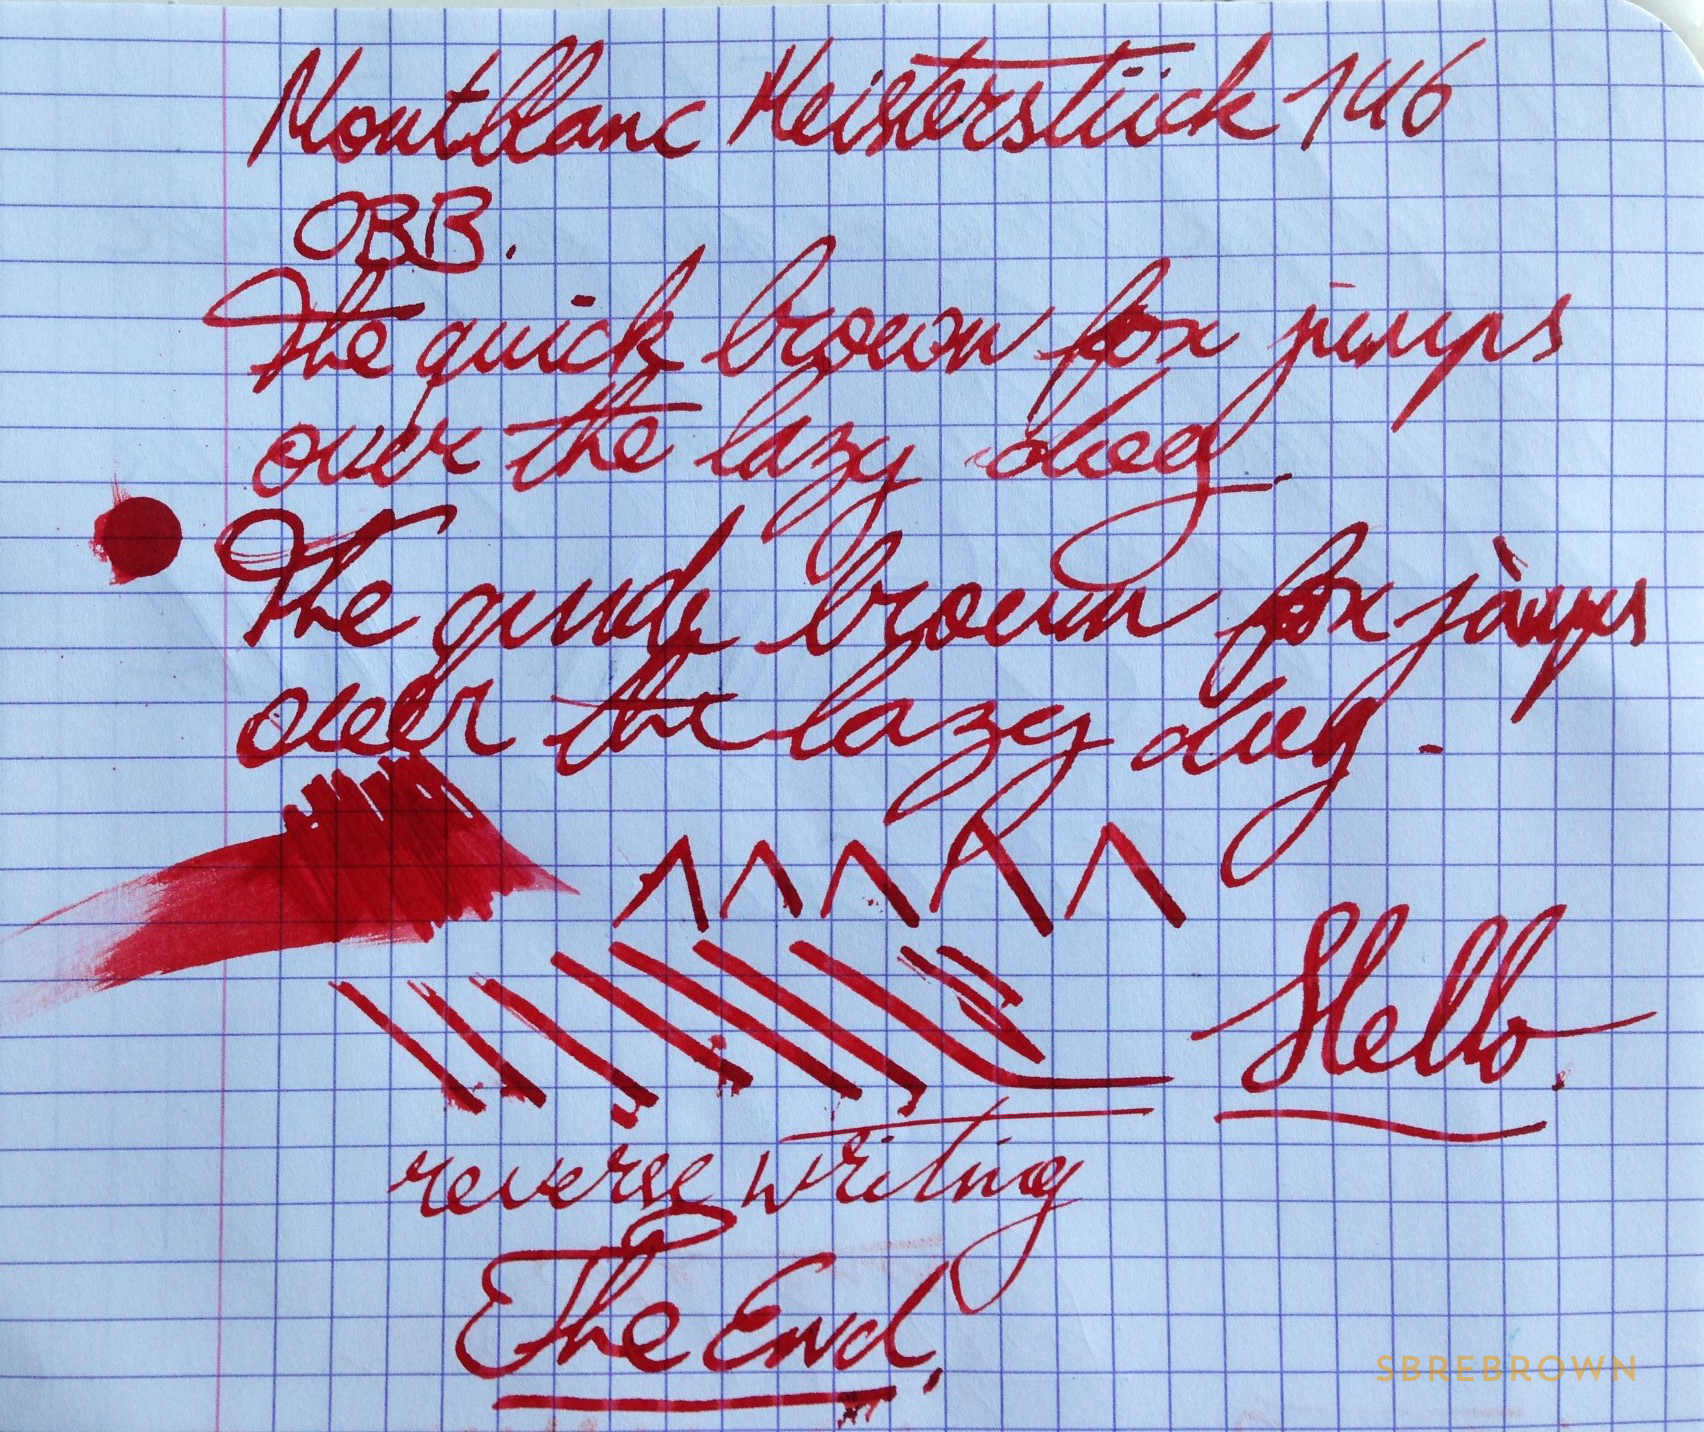 Montblanc Meisterstück 146
OBB.
The quick brown fox jumps
over the lazy dog.
The quick brown fox jumps
over the lazy dog.
Hello.
reverse writing
The End.
SBREBROWN